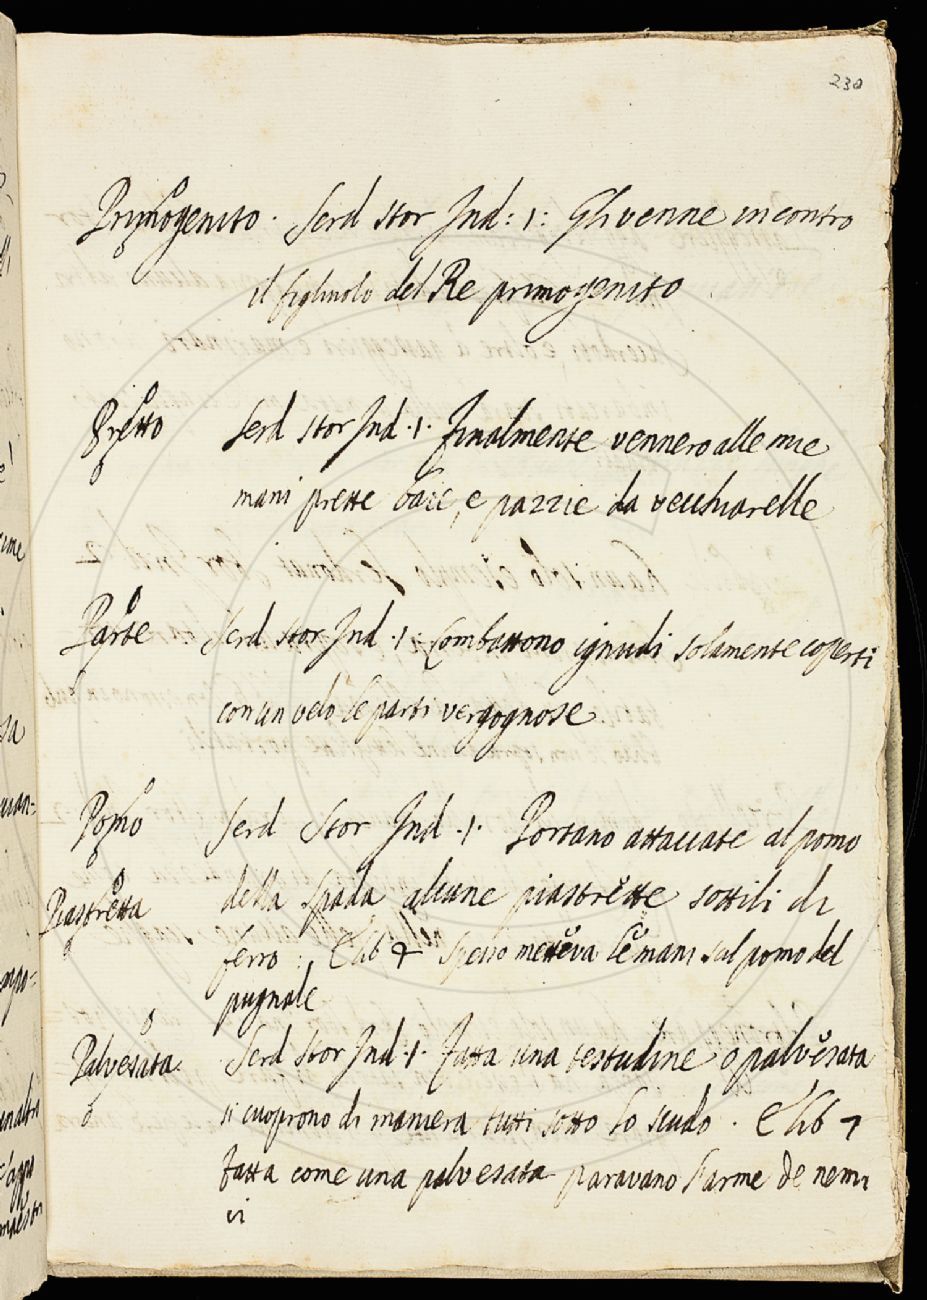 230
Primogenito. Serd stor Ind: 1: Gli venne incontro
il figliuolo del Re primogenito
Pretto Serd stor Ind. 1. finalmente vennero alle mie
mani prette baie, e pazzie da vecchiarelle
Parte Serd stor Ind. 1. Combattono ignudi solamente coperti
con un velo le parti vergognose
Pomo Serd Stor Ind. 1. Portano attaccate al pomo
Piastretta della spada alcune piastrette sottili di
ferro: E lib 4 spesso metteva le mani sul pomo del
pugnale
Palvesata Serd stor Ind. 1. fatta una testudine o palvesata
si cuoprono di maniera tutti sotto lo scudo. E lib 7
fatta come una palvesata paravano l'arme de nemi
ci